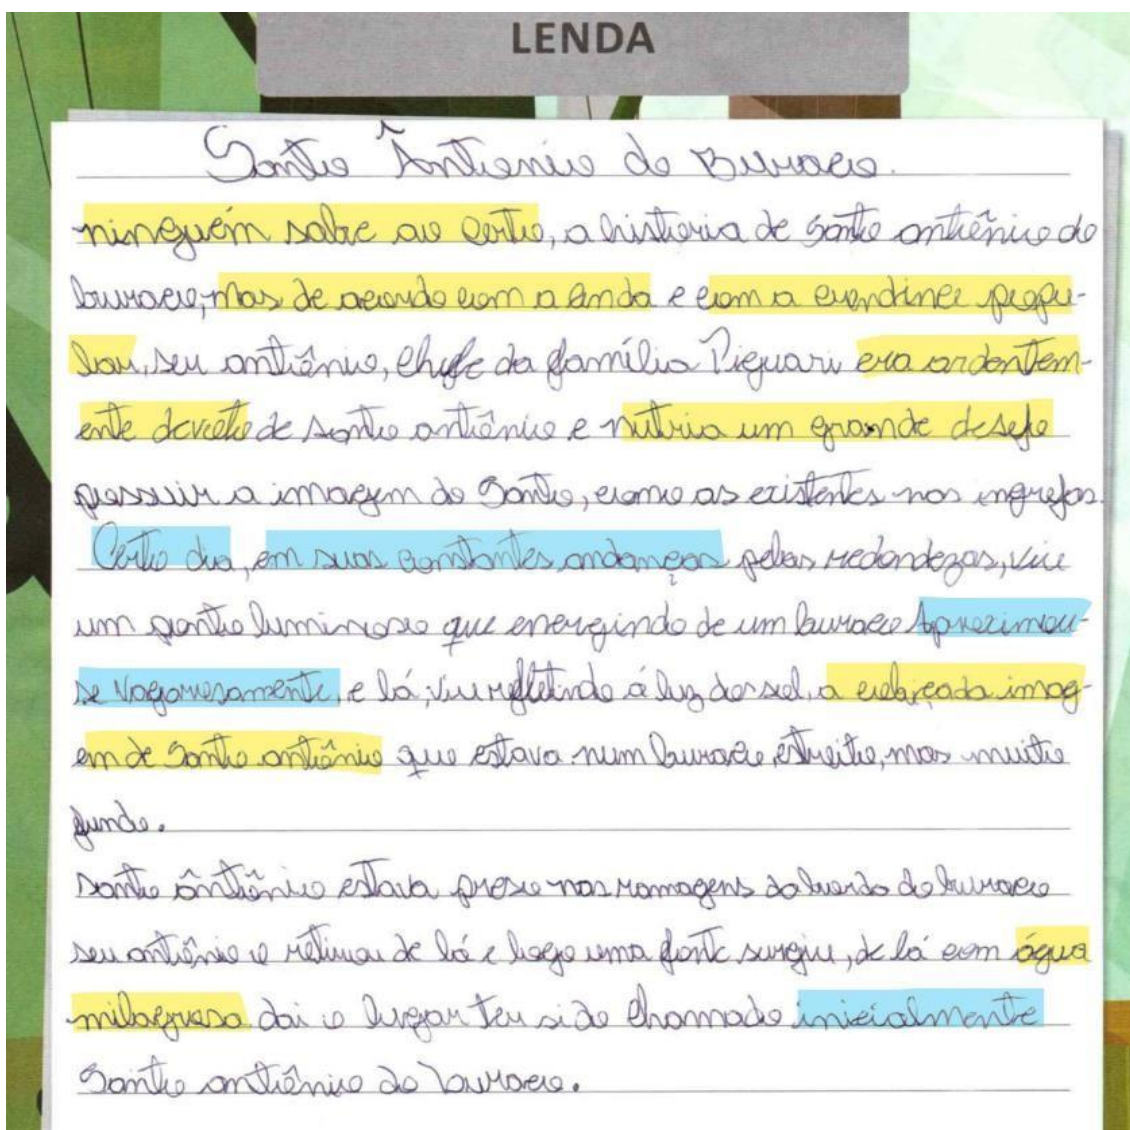 LENDA
Santo Ântonio do Buraco.
ninguém sabe ao certo, a historia de Santo antiônio do
buraco, mas de acordo com a lenda e com a crendince popu-
lar, seu antiônio, chefe da família Piquari era ardentem-
ente devoto de santo antiônio e nutria um grande desejo
possuir a imagem do Santo, como as existentes nas ingrejas.
Certo dia, em suas constantes andanças pelas redondezas, viu
um ponto luminoso que energindo de um buraco Aproximou-
se vagarosamente, e lá, viu refletindo á luz do sol, a cobiçada imag-
em de Santo antiônio que estava num buraco, estreito, mas muito
fundo.
santo ântiônio estava preso nas ramagens da borda do buraco
seu antiônio o retirou de lá e logo uma fonte surgiu, de lá com água
milagrosa dai o lugar ter sido chamado inicialmente
Santo antiônio do buraco.